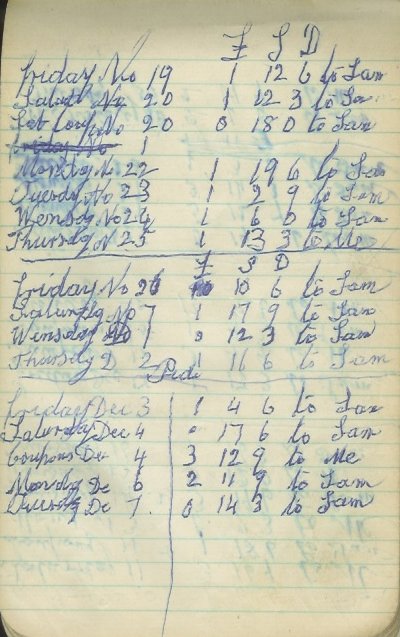 £ S D
Friday No 19 1 12 6 to Sam
Saturd No 20 1 12 3 to Sam
Sat Coup No 20 0 18 0 to Sam
Monday No 22 1 19 6 to Sam
Tuesdy No 23 1 2 9 to Sam
Wensdy No 24 1 6 0 to Sam
Thursdy N 25 1 13 3 to Me
£ S D
Friday No 26 10 6 to Sam
Saturdy No 7 1 17 9 to Sam
Wensday 1 0 12 3 to Sam
Thursdy D 2 1 16 6 to Sam
Friday Dec 3 1 4 6 to Sam
Saturday Dec 4 0 17 6 to Sam
Coupons De 4 3 12 9 to Me
Mondy De 6 2 11 9 to Sam
Tuesdy De 7 0 14 3 to Sam